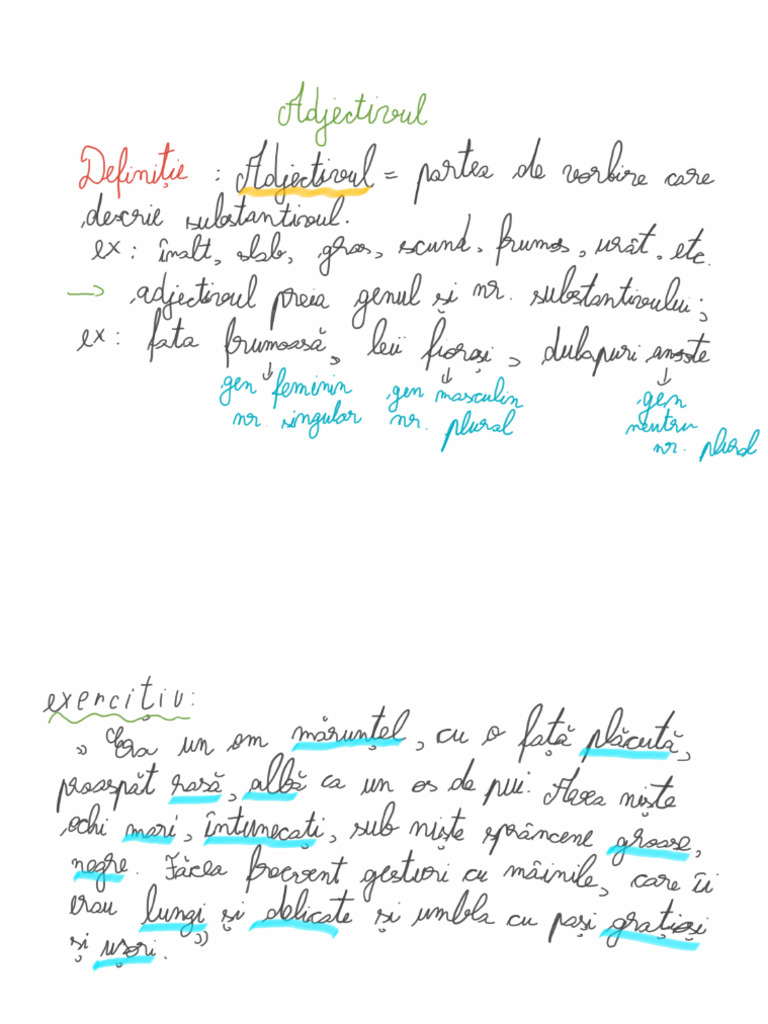 Adjectivul
Definiție : Adjectivul = partea de vorbire care
descrie substantivul.
ex: înalt, slab, gras, scund, frumos, urât, etc.
→ adjectivul preia genul și nr. substantivului;
ex: fata frumoasă, leii fioroși, dulapuri anoste
↓ gen feminin ↓ gen masculin ↓ gen
nr. singular nr. plural neutru
nr. plural
exercițiu:
„Era un om mărunțel, cu o față plăcută,
proaspăt rasă, albă ca un os de pui. Avea niște
ochi mari, întunecați, sub niște sprâncene groase,
negre. Făcea frecvent gesturi cu mâinile, care îi
erau lungi și delicate și umbla cu pași grațioși
și ușori.”